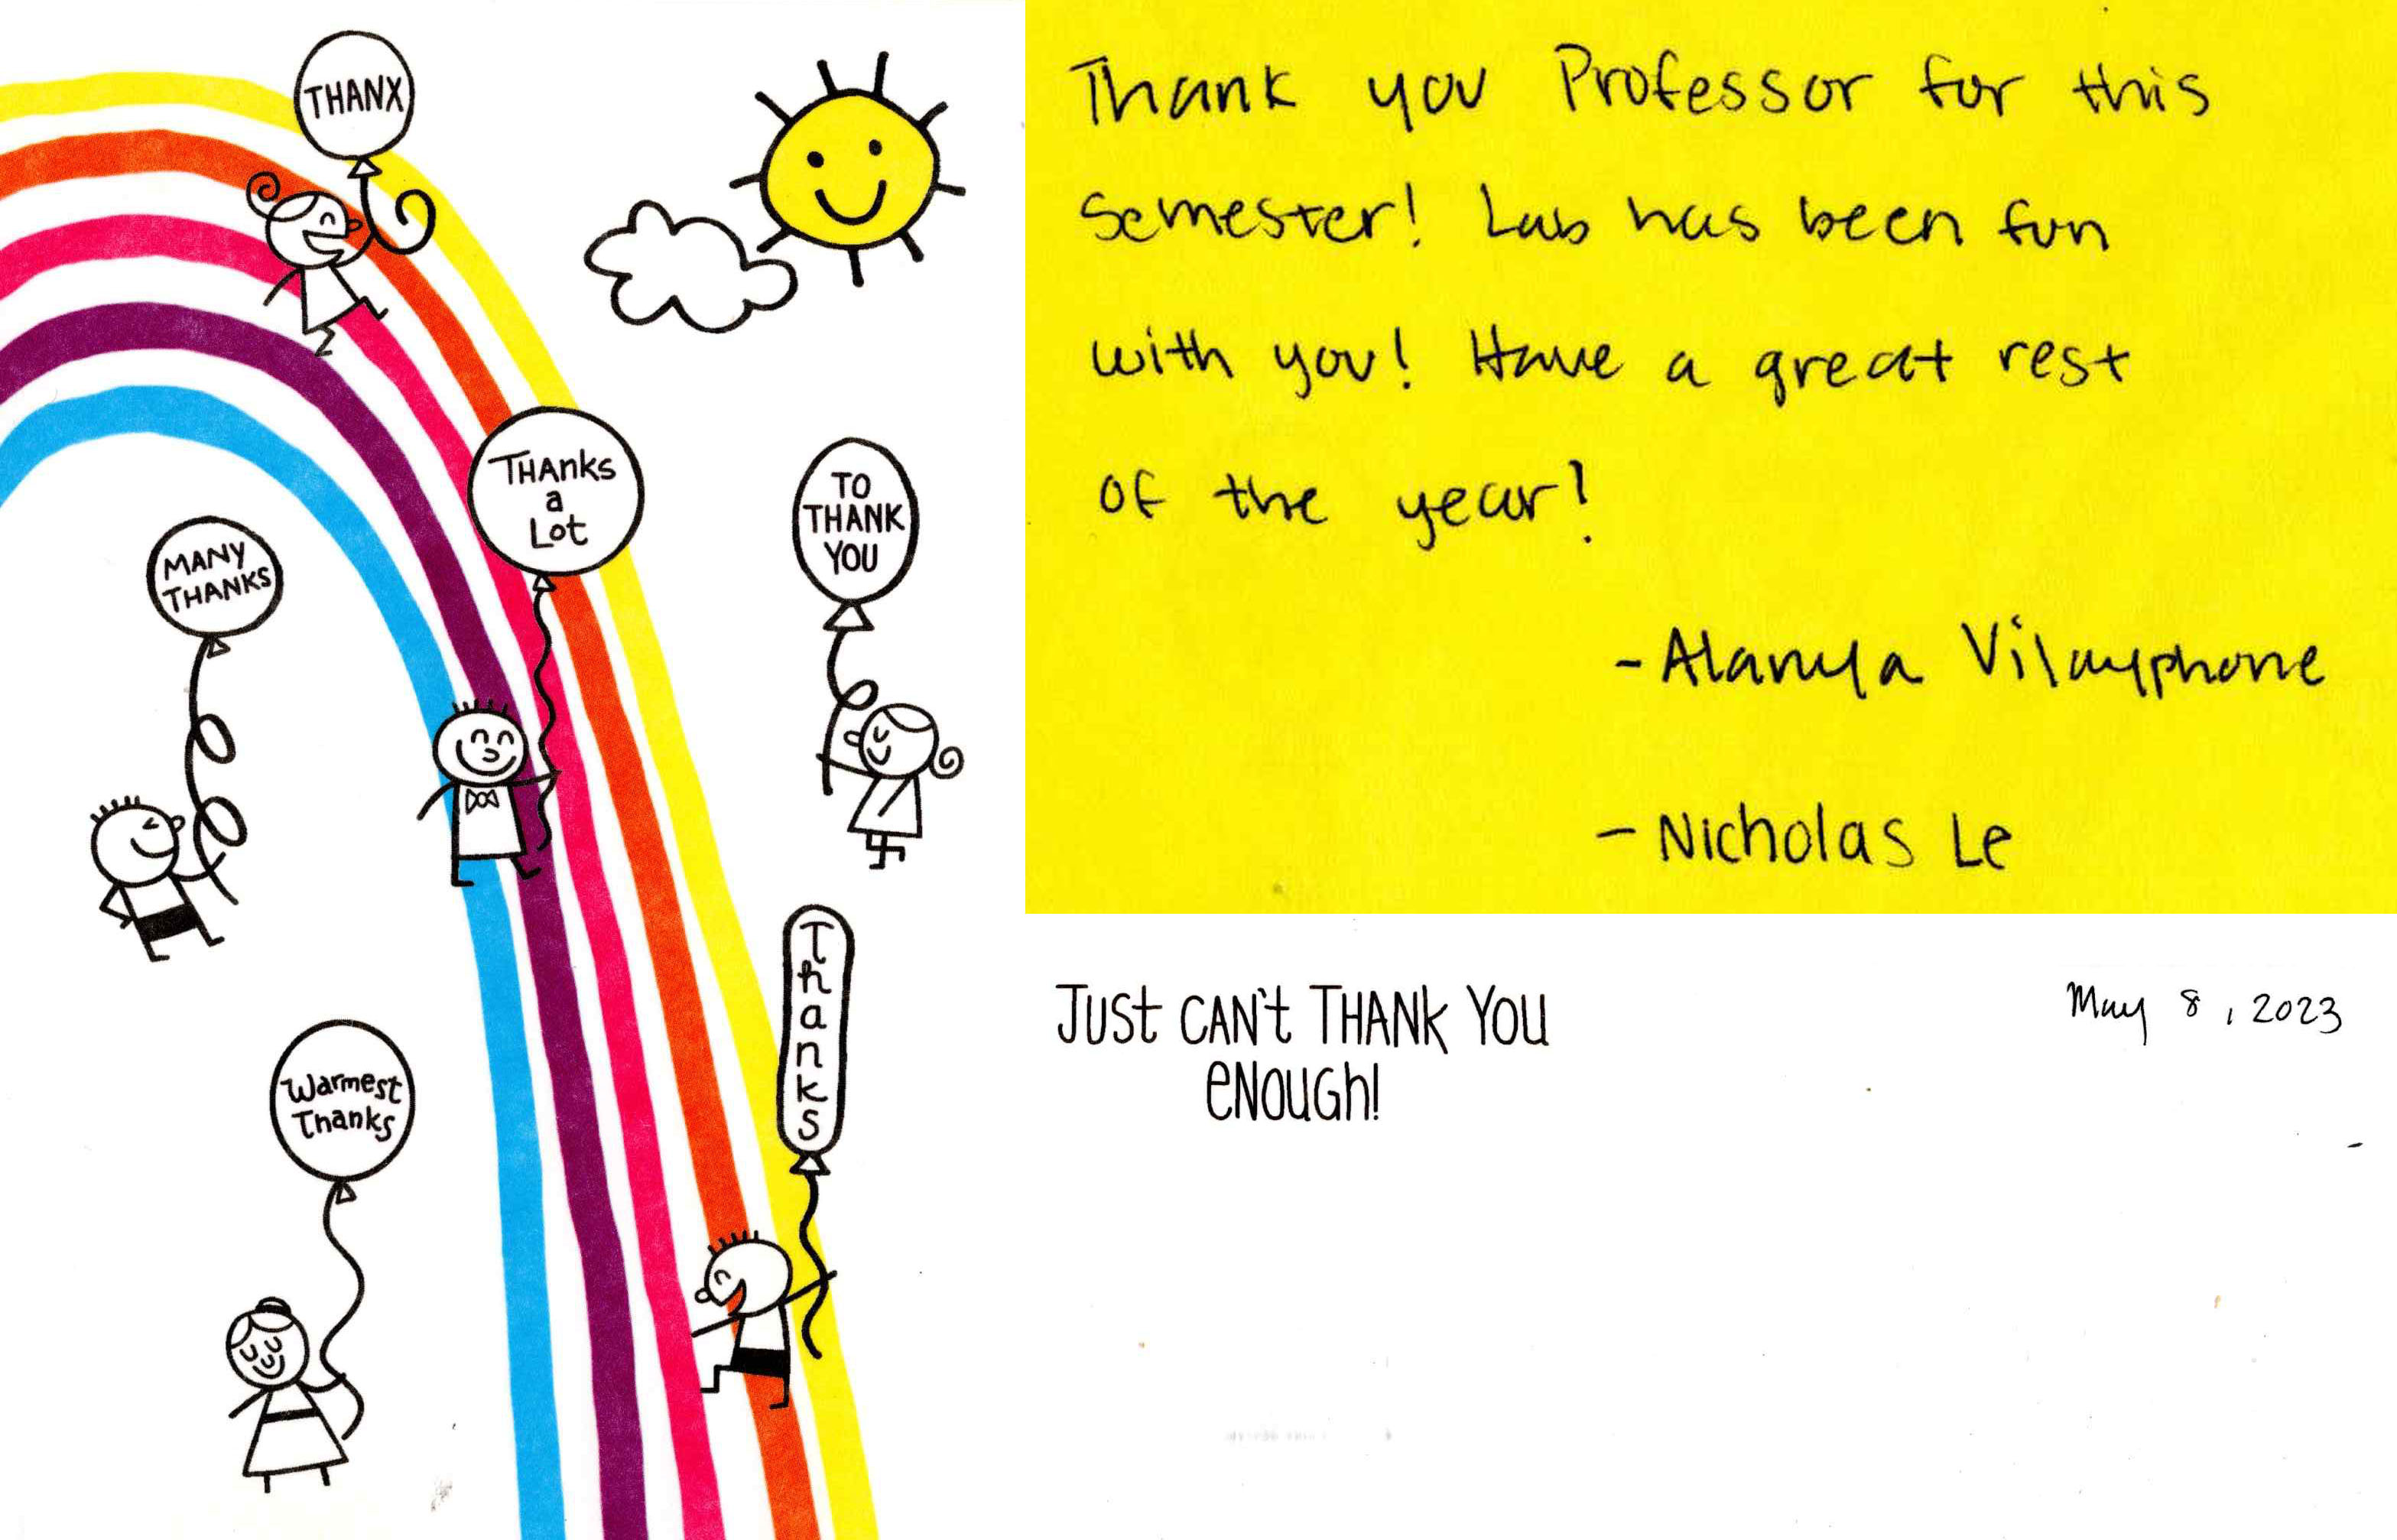 THANX
THAnks
a
Lot
TO
THANK
YOU
MANY
THANKS
Thanks
Warmest
Thanks
Thank you Professor for this
Semester! Lab has been fun
with you! Have a great rest
of the year!
- Alanya Vilayphone
- Nicholas Le
JUSt CAN't THANk YOU
eNOUGh!
May 8, 2023